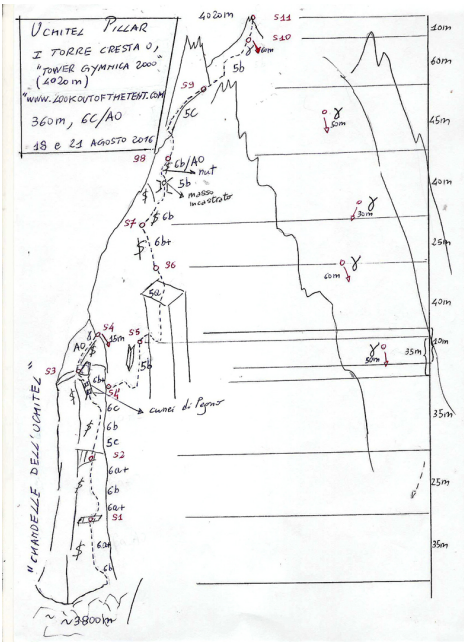 UCHITEL PILLAR
I TORRE CRESTA O,
"TOWER GYMNICA 2000"
(4020m)
"WWW.LOOKOUTOFTHETENT.COM"
360m, 6C/A0
18 e 21 AGOSTO 2016
4020m
S11
S10
60m
5b
S9
5c
S8
6b/A0
nut
5b
masso
incastrato
6b
S7
6b+
S6
5a
S4
15m
S5
A0
S3
6b+
5b
S4'
cunei di legno
6c
6b
5c
S2
6a+
6b
6a+
S1
6a+
6b
~3800m
"CHANDELLE DELL'UCHITEL"
50m
30m
60m
50m
10m
60m
45m
40m
25m
40m
10m
35m
35m
25m
35m